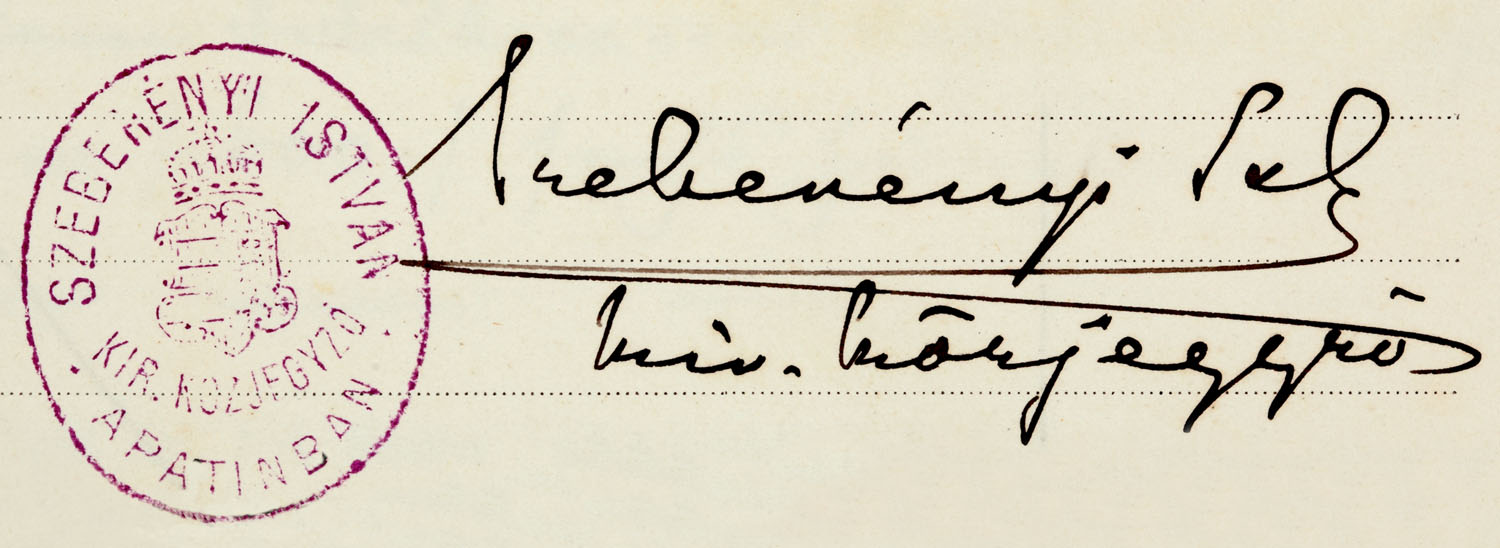 SZEBERÉNYI ISTVÁN
KIR. KÖZJEGYZŐ
APATINBAN
Szeberényi
kir. közjegyző